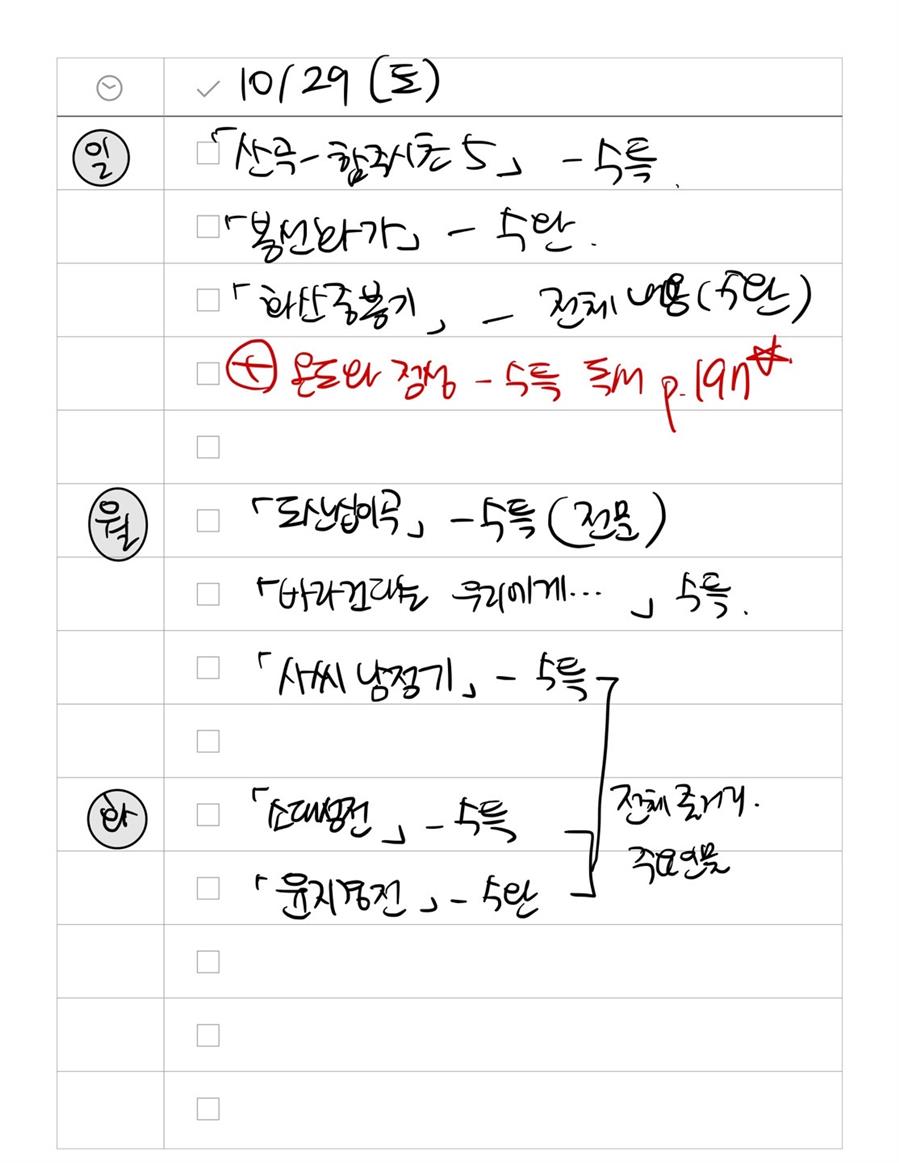 10/29 (토)
일 「산곡-함주시초 5」 - 수특.
「봉선화가」 - 수완.
「화산중봉기」 - 전체 내용(수완)
+ 온도와 정성 - 수특 독서 p.197☆
월 「도산십이곡」 - 수특(전문)
「바라건대는 우리에게...」 수특.
「사씨남정기」 - 수특
화 「소대성전」 - 수특
전체 줄거리.
주요인물
「윤지경전」 - 수완